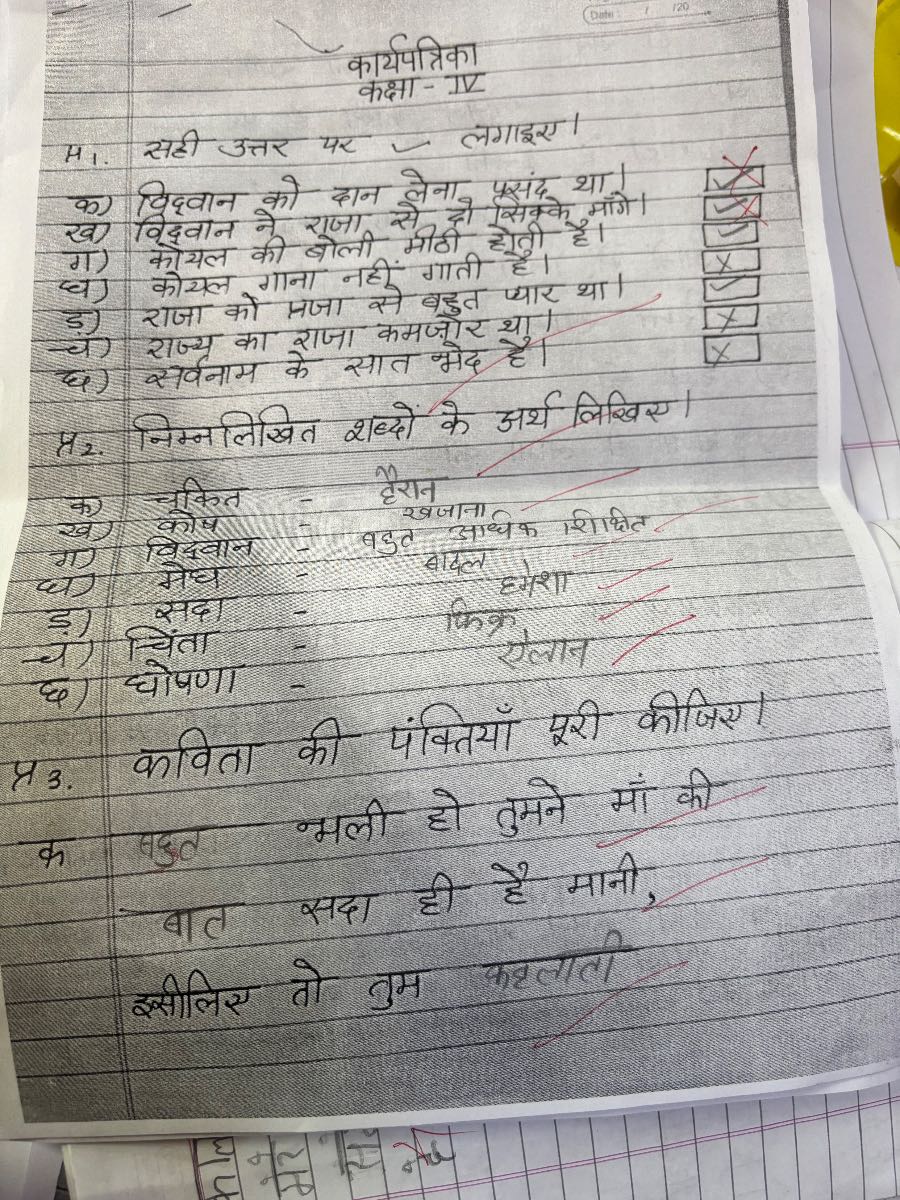 Date: / /20
कार्यपत्रिका
कक्षा - IV
प्र1. सही उत्तर पर ✓ लगाइए।
क) विद्वान को दान लेना पसंद था। ✓
ख) विद्वान ने राजा से दो सिक्के माँगे। ✓
ग) कोयल की बोली मीठी होती है। ✓
घ) कोयल गाना नहीं गाती है। ×
ड़) राजा को प्रजा से बहुत प्यार था। ✓
च) राज्य का राजा कमजोर था। ×
छ) सर्वनाम के सात भेद है। ×
प्र2. निम्नलिखित शब्दों के अर्थ लिखिए।
क) चकित - हैरान
ख) कोष - खजाना
ग) विद्वान - बहुत अधिक शिक्षित
घ) मेघ - बादल
ड़) सदा - हमेशा
च) चिंता - फिक्र
छ) घोषणा - ऐलान
प्र3. कविता की पंक्तियाँ पूरी कीजिए।
क बहुत भली हो तुमने माँ की
बात सदा ही है मानी,
इसीलिए तो तुम कहलाती